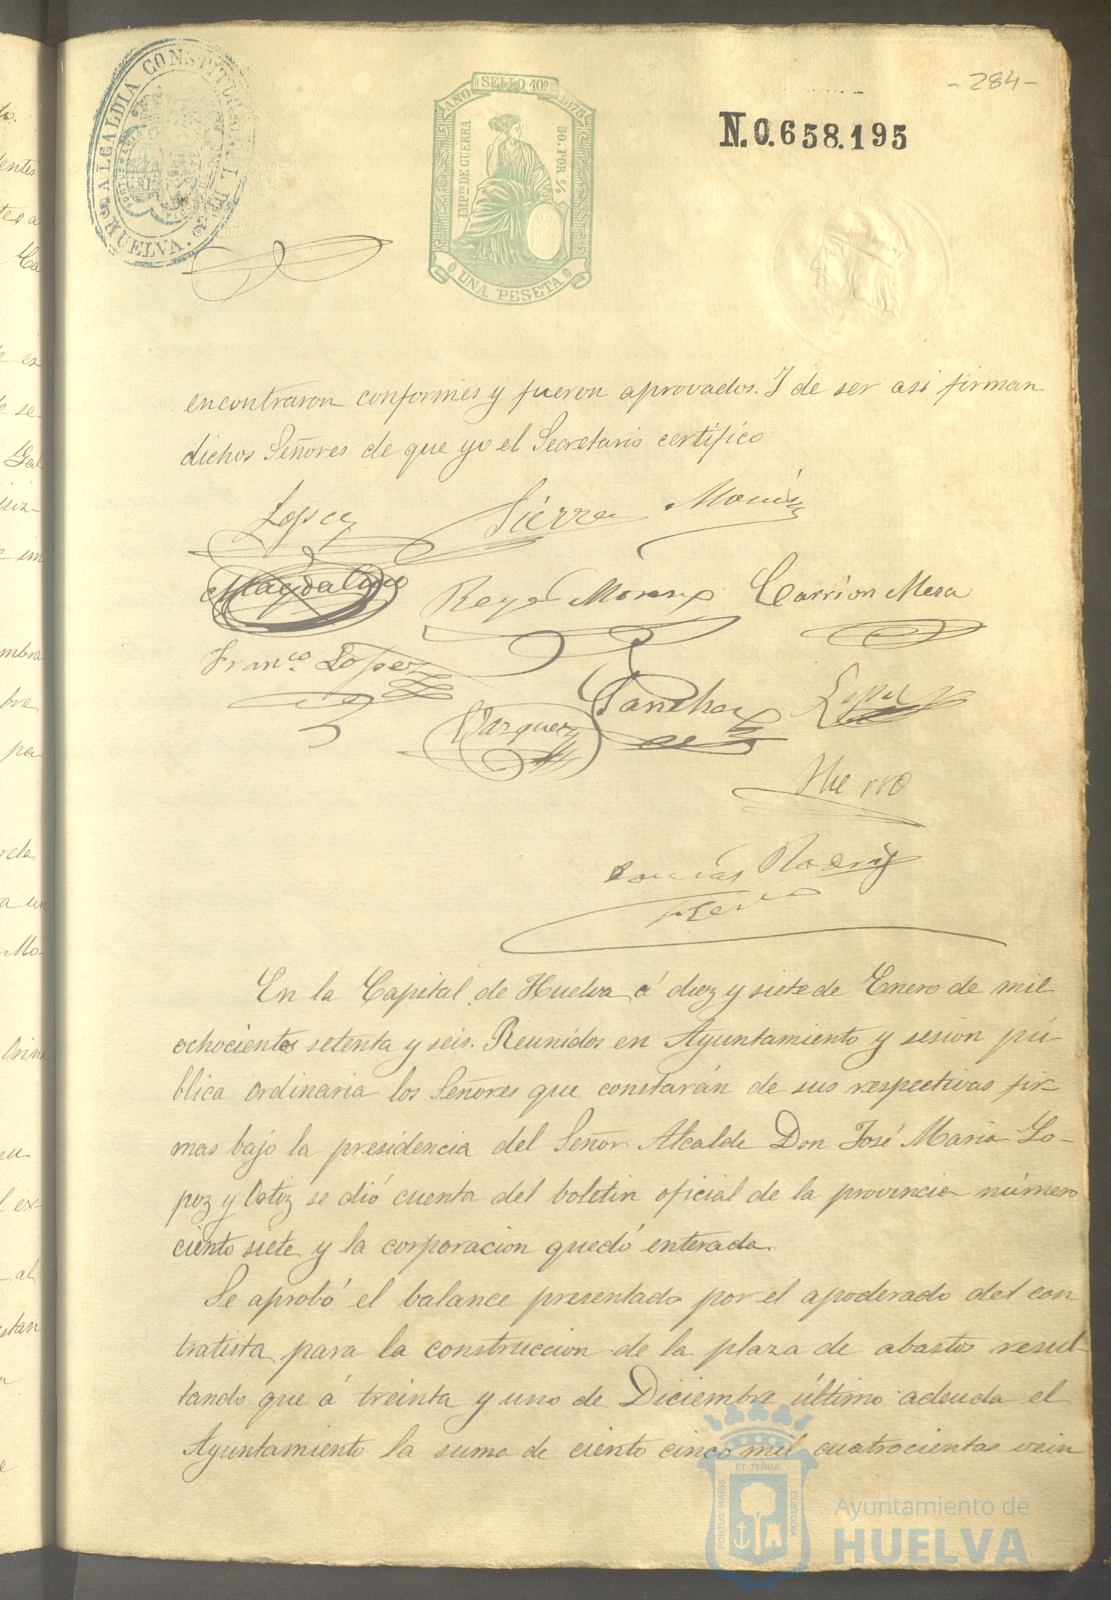 -284-
ALCALDIA CONSTITUCIONAL DE HUELVA.
SELLO 10º
AÑO 1876
IMP.TO DE GUERRA
50. POR %
UNA PESETA
N.0.658.195
encontraron conformes y fueron aprovados. Y de ser asi firman
dichos Señores de que yo el Secretario certifico
Lopez Sierra
Magdaleno Reyes Moreno Carrion Mesa
Franco Lopez
Vazquez Sanchez Lopez
Hierro
En la Capital de Huelva á diez y siete de Enero de mil
ochocientos setenta y seis. Reunidos en Ayuntamiento y sesion pú
blica ordinaria los Señores que constarán de sus respectivas fir
mas bajo la presidencia del Señor Alcalde Don José Maria Lo-
pez y Ortiz se dió cuenta del boletin oficial de la provincia número
ciento siete y la corporacion quedó enterada.
Se aprobó el balance presentado por el apoderado del con
tratista para la construccion de la plaza de abastos resul-
tando que á treinta y uno de Diciembre último adeuda el
Ayuntamiento la suma de ciento cinco mil cuatrocientas vein
PORTUS MARIS ET TERRAE CUSTODIA
Ayuntamiento de
HUELVA